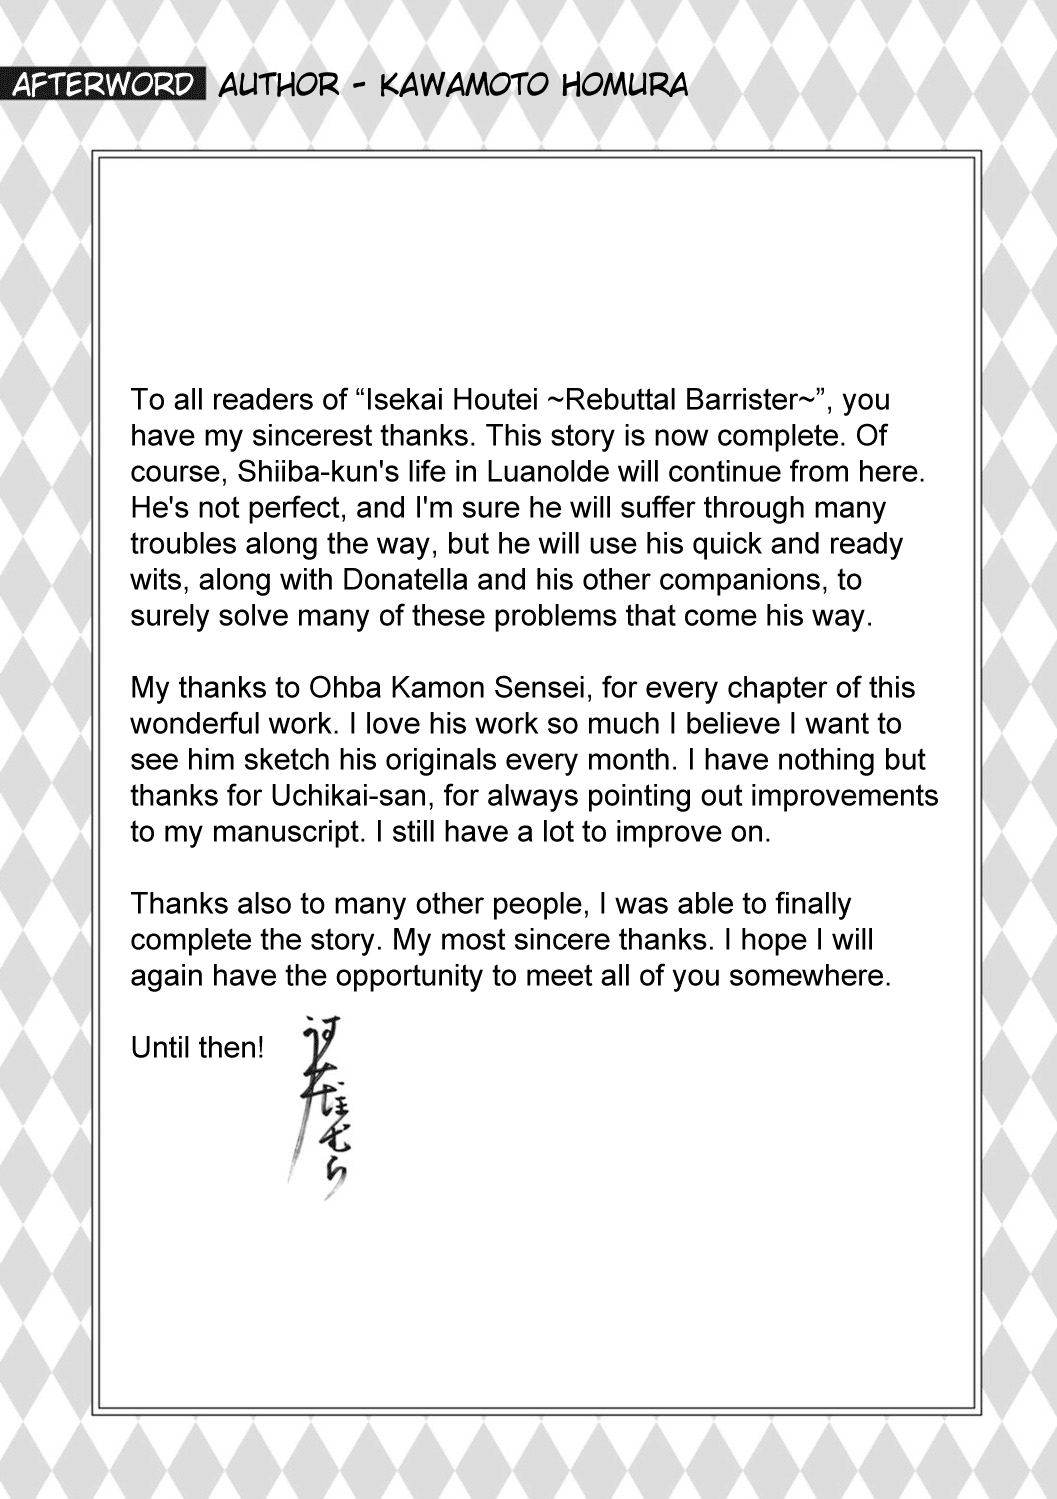 AFTERWORD AUTHOR - KAWAMOTO HOMURA
To all readers of “Isekai Houtei ~Rebuttal Barrister~”, you
have my sincerest thanks. This story is now complete. Of
course, Shiiba-kun's life in Luanolde will continue from here.
He's not perfect, and I'm sure he will suffer through many
troubles along the way, but he will use his quick and ready
wits, along with Donatella and his other companions, to
surely solve many of these problems that come his way.
My thanks to Ohba Kamon Sensei, for every chapter of this
wonderful work. I love his work so much I believe I want to
see him sketch his originals every month. I have nothing but
thanks for Uchikai-san, for always pointing out improvements
to my manuscript. I still have a lot to improve on.
Thanks also to many other people, I was able to finally
complete the story. My most sincere thanks. I hope I will
again have the opportunity to meet all of you somewhere.
Until then!